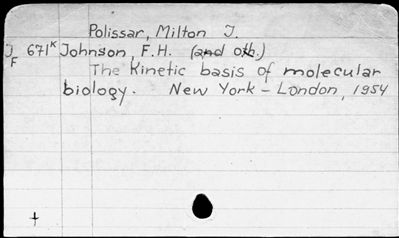 Polissar, Milton J.
J 671K Johnson, F.H. (and oth.)
F
The Kinetic basis of molecular
biology. New York - London, 1954